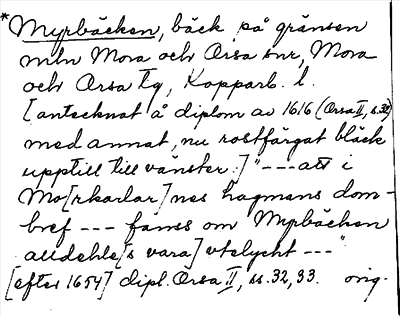 * Myrbäcken, bäck på gränsen
mln Mora och Orsa snr, Mora
och Orsa tg, Kopparb. l.
[antecknat å diplom av 1616 (Orsa II, s.32)
med annat, nu rostfärgat bläck
upptill till vänster:] "--- att i
Mo[rkarlar]nes hagmans dom-
bref --- fanss om Myrbäcken
alldehle[s vara] vtelycht ---"
[efter 1654] dipl. Orsa II, ss. 32, 33. orig.